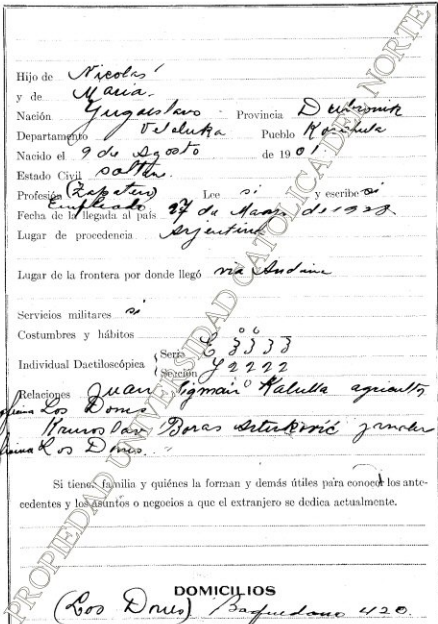 Hijo de Nicolás
y de Maria
Nación Yugoeslavo Provincia Dubronik
Departamento Veleluka Pueblo Korcula
Nacido el 9 de Agosto de 1901
Estado Civil solter
Profesión (Zapatero) Lee si y escribe si
Empleado
Fecha de la llegada al país 27 de Marzo de 1928
Lugar de procedencia Argentina
Lugar de la frontera por donde llegó via Andina
Servicios militares si
Costumbres y hábitos
Individual Dactiloscópica Serie E 3333
Sección Y 2222
Relaciones Juan Kalulla agricultor
Los Dones
Boras
Los Dones
Si tiene familia y quiénes la forman y demás útiles para conocer los ante-
cedentes y los asuntos o negocios a que el extranjero se dedica actualmente.
DOMICILIOS
(Los Dones) Baquedano 420.
PROPIEDAD UNIVERSIDAD CATOLICA DEL NORTE